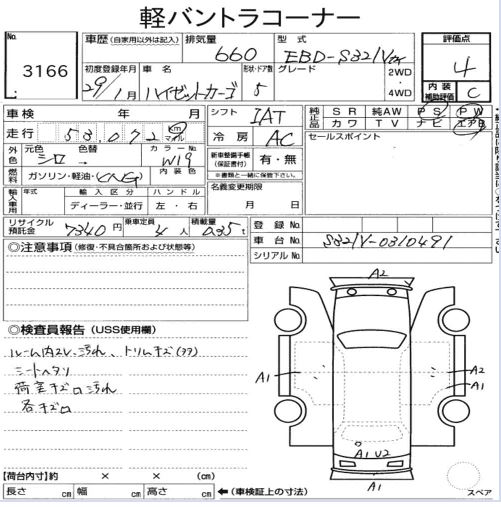 軽バントラコーナー
No.
3166
車歴 (自家用以外は記入)
排気量
660
型式
EBD-S321V
評価点
4
初度登録年月
29/1月
車名
ハイゼットカーゴ
形状・ドア数
5
グレード
2WD
・
4WD
内装
補助評価
C
車検 年 月
シフト IAT
純正品
SR 純AW PS PW
カワ TV ナビ エアB
走行 53,072 km マイル
冷房 AC
セールスポイント
外色
元色 シロ
色替
カラーNo. W19
新車整備手帳
(保証書付)
有・無
燃料
ガソリン・軽油・CNG
内装色
※書類と一緒に保管して下さい。
輸入車用
年式
輸入区分
ハンドル
ディーラー・並行
左・右
名義変更期限
月 日
リサイクル預託金 7340円
乗車定員 4人
積載量 0.35t
登録No.
車台No. S321V-0310491
シリアルNo.
◎注意事項 (修復・不具合箇所および状態等)
A2
◎検査員報告 (USS使用欄)
ルーム内スレ汚れ、トリムキズ(リア)
シートヘタリ
荷室キズ汚れ
各キズ
A1
A2
A1
A1 U2
A1
【荷台内寸】約 × × (cm)
長さ cm 幅 cm 高さ cm
←(車検証上の寸法)
スペア